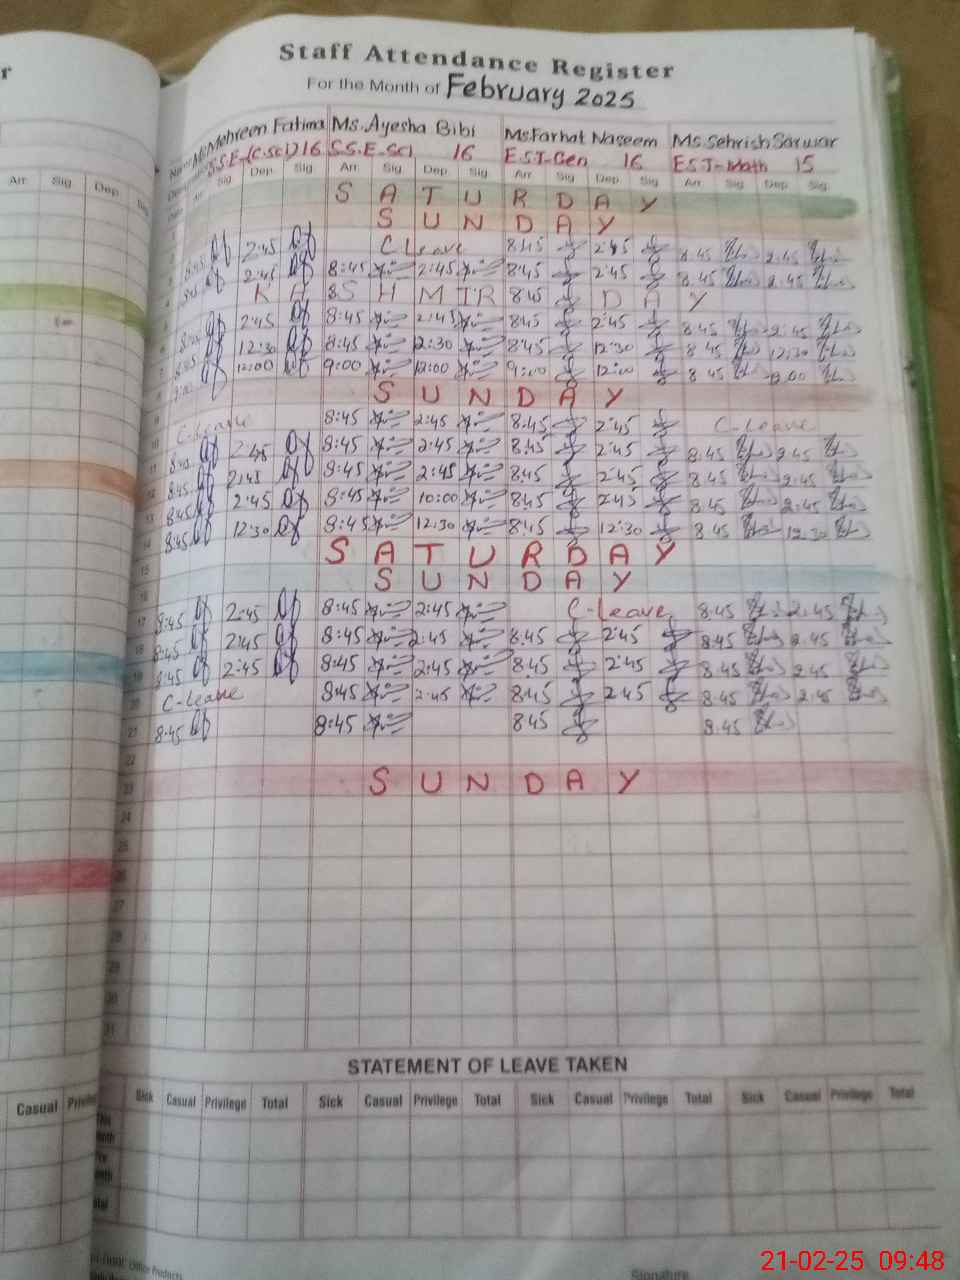 Staff Attendance Register
For the Month of February 2025
Ms. Mehreen Fatima Ms. Ayesha Bibi Ms. Farhat Naseem Ms. Sehrish Sarwar
S.S.E-(C.Sci) 16 S.S.E-Sci 16 E.S.T-Gen 16 E.S.T-Math 15
Arr Sig Dep Sig Dep Sig Arr Sig Dep Sig Arr Sig Dep Sig Arr Sig Dep Sig
SATURDAY
SUNDAY
8:45 2:45 C Leave 8:45 2:45 8:45 2:45
8:45 2:45 8:45 2:45 8:45 2:45 8:45 2:45
KASHMIR 8:45 DAY
8:45 2:45 8:45 2:45 8:45 2:45 8:45 2:45
8:45 12:30 8:45 12:30 8:45 12:30 8:45 12:30
9:00 12:00 9:00 12:00 9:00 12:00 8:45
SUNDAY
C-Leave 8:45 2:45 8:45 2:45 C-Leave
8:45 2:45 8:45 2:45 8:45 2:45 8:45 2:45
8:45 2:45 8:45 2:45 8:45 2:45 8:45 2:45
8:45 2:45 8:45 10:00 8:45 2:45 8:45 2:45
8:45 12:30 8:45 12:30 8:45 12:30 8:45 12:30
SATURDAY
SUNDAY
8:45 2:45 8:45 2:45 C-Leave 8:45 2:45
8:45 2:45 8:45 2:45 8:45 2:45 8:45 2:45
8:45 2:45 8:45 2:45 8:45 2:45 8:45 2:45
20 C-Leave 8:45 2:45 8:45 2:45 8:45 2:45
21 8:45 8:45 8:45 8:45
22
23 SUNDAY
24
25
26
27
28
29
30
31
STATEMENT OF LEAVE TAKEN
Casual Sick Casual Privilege Total Sick Casual Privilege Total Sick Casual Privilege Total Sick Casual Privilege Total
Signature
21-02-25 09:48